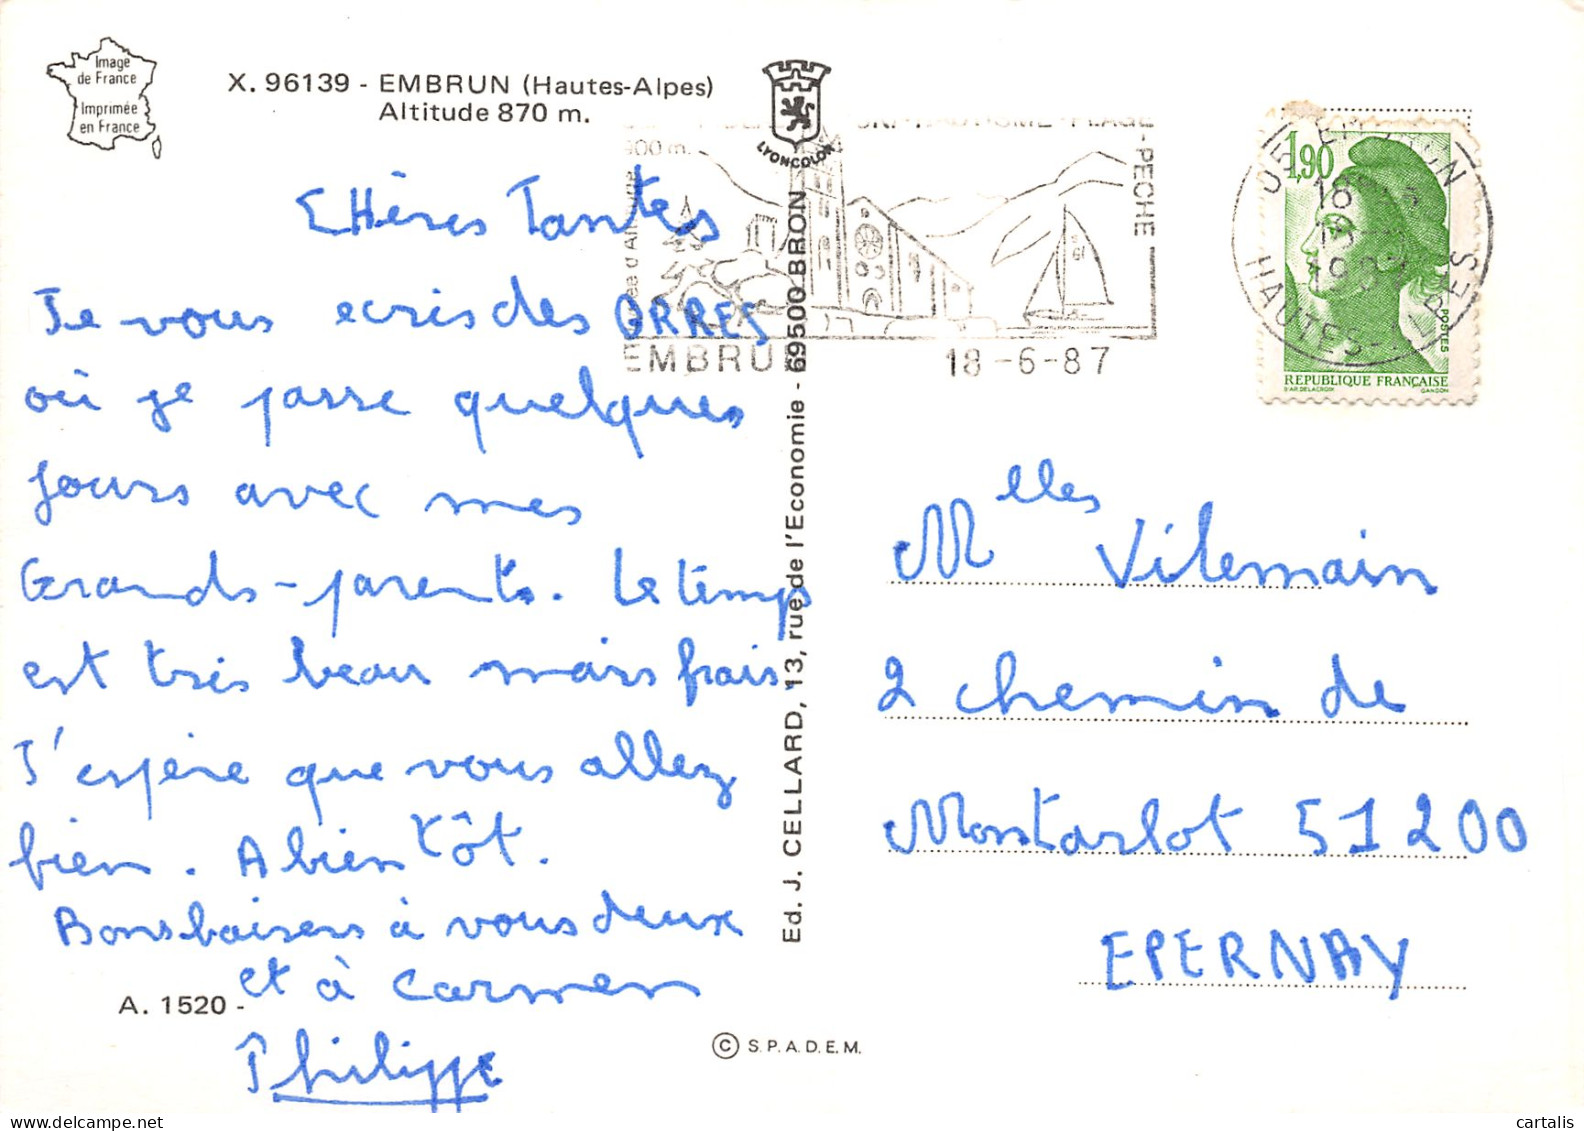 Image
de France
Imprimée
en France
X. 96139 - EMBRUN (Hautes-Alpes)
Altitude 870 m.
LYONCOLOR
Chères Tantes
Je vous ecris des ORRES
où je passe quelques
jours avec mes
Grands-parents. Le temps
est très beau mais frais
J'espère que vous allez
bien. A bientôt.
Bons baisers à vous deux
et à Carmen
Philippe
A. 1520 -
Ed. J. CELLARD, 13, rue de l'Economie - 69500 BRON
© S.P.A.D.E.M.
PLAGE - PECHE
EMBRUN
18-6-87
1,90
POSTES
REPUBLIQUE FRANÇAISE
D'AP. DELACROIX GANDON
05 EMBRUN
1987
HAUTES-ALPES
Melles Vilemain
2 chemin de
Montarlot 51200
EPERNAY
www.delcampe.net
cartalis